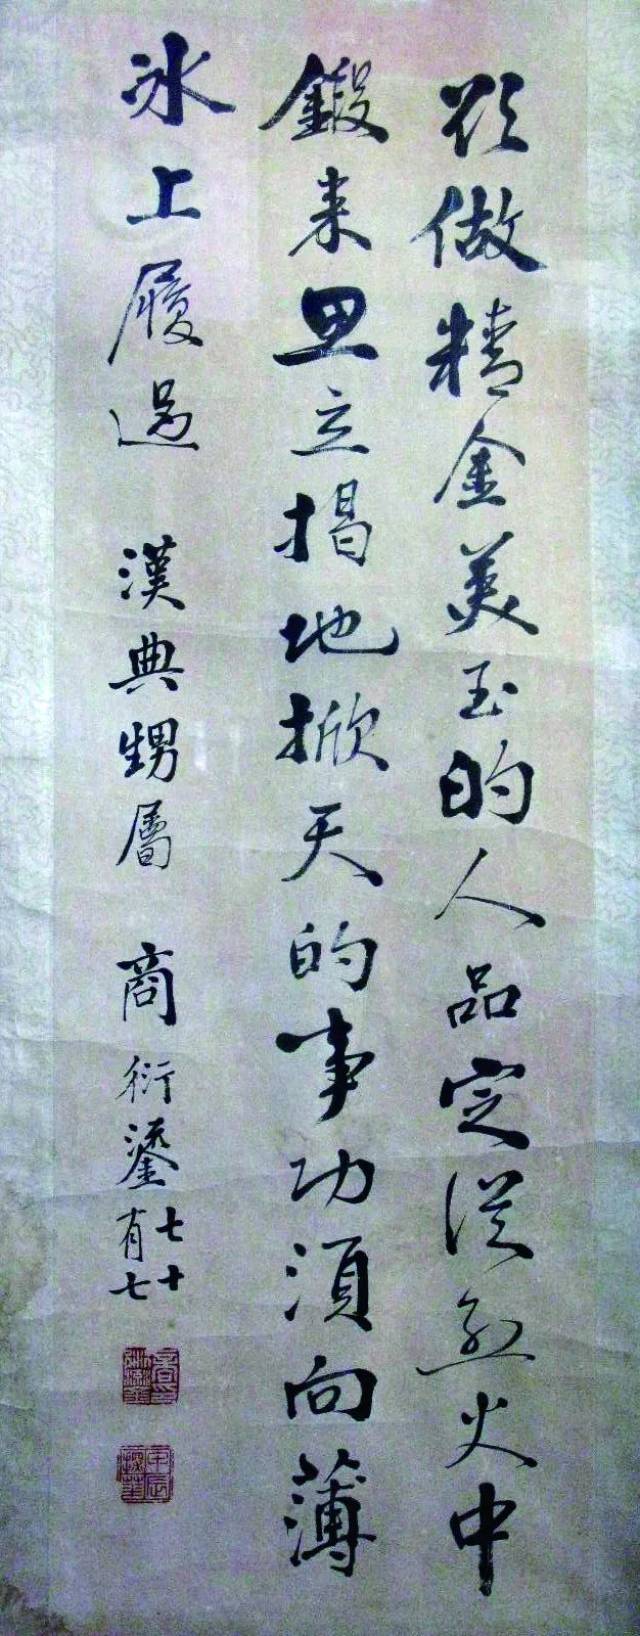 欲做精金美玉的人品定從烈火中
鍛来思立揭地掀天的事功須向薄
冰上履過 漢典甥屬 商衍鎏七十有七